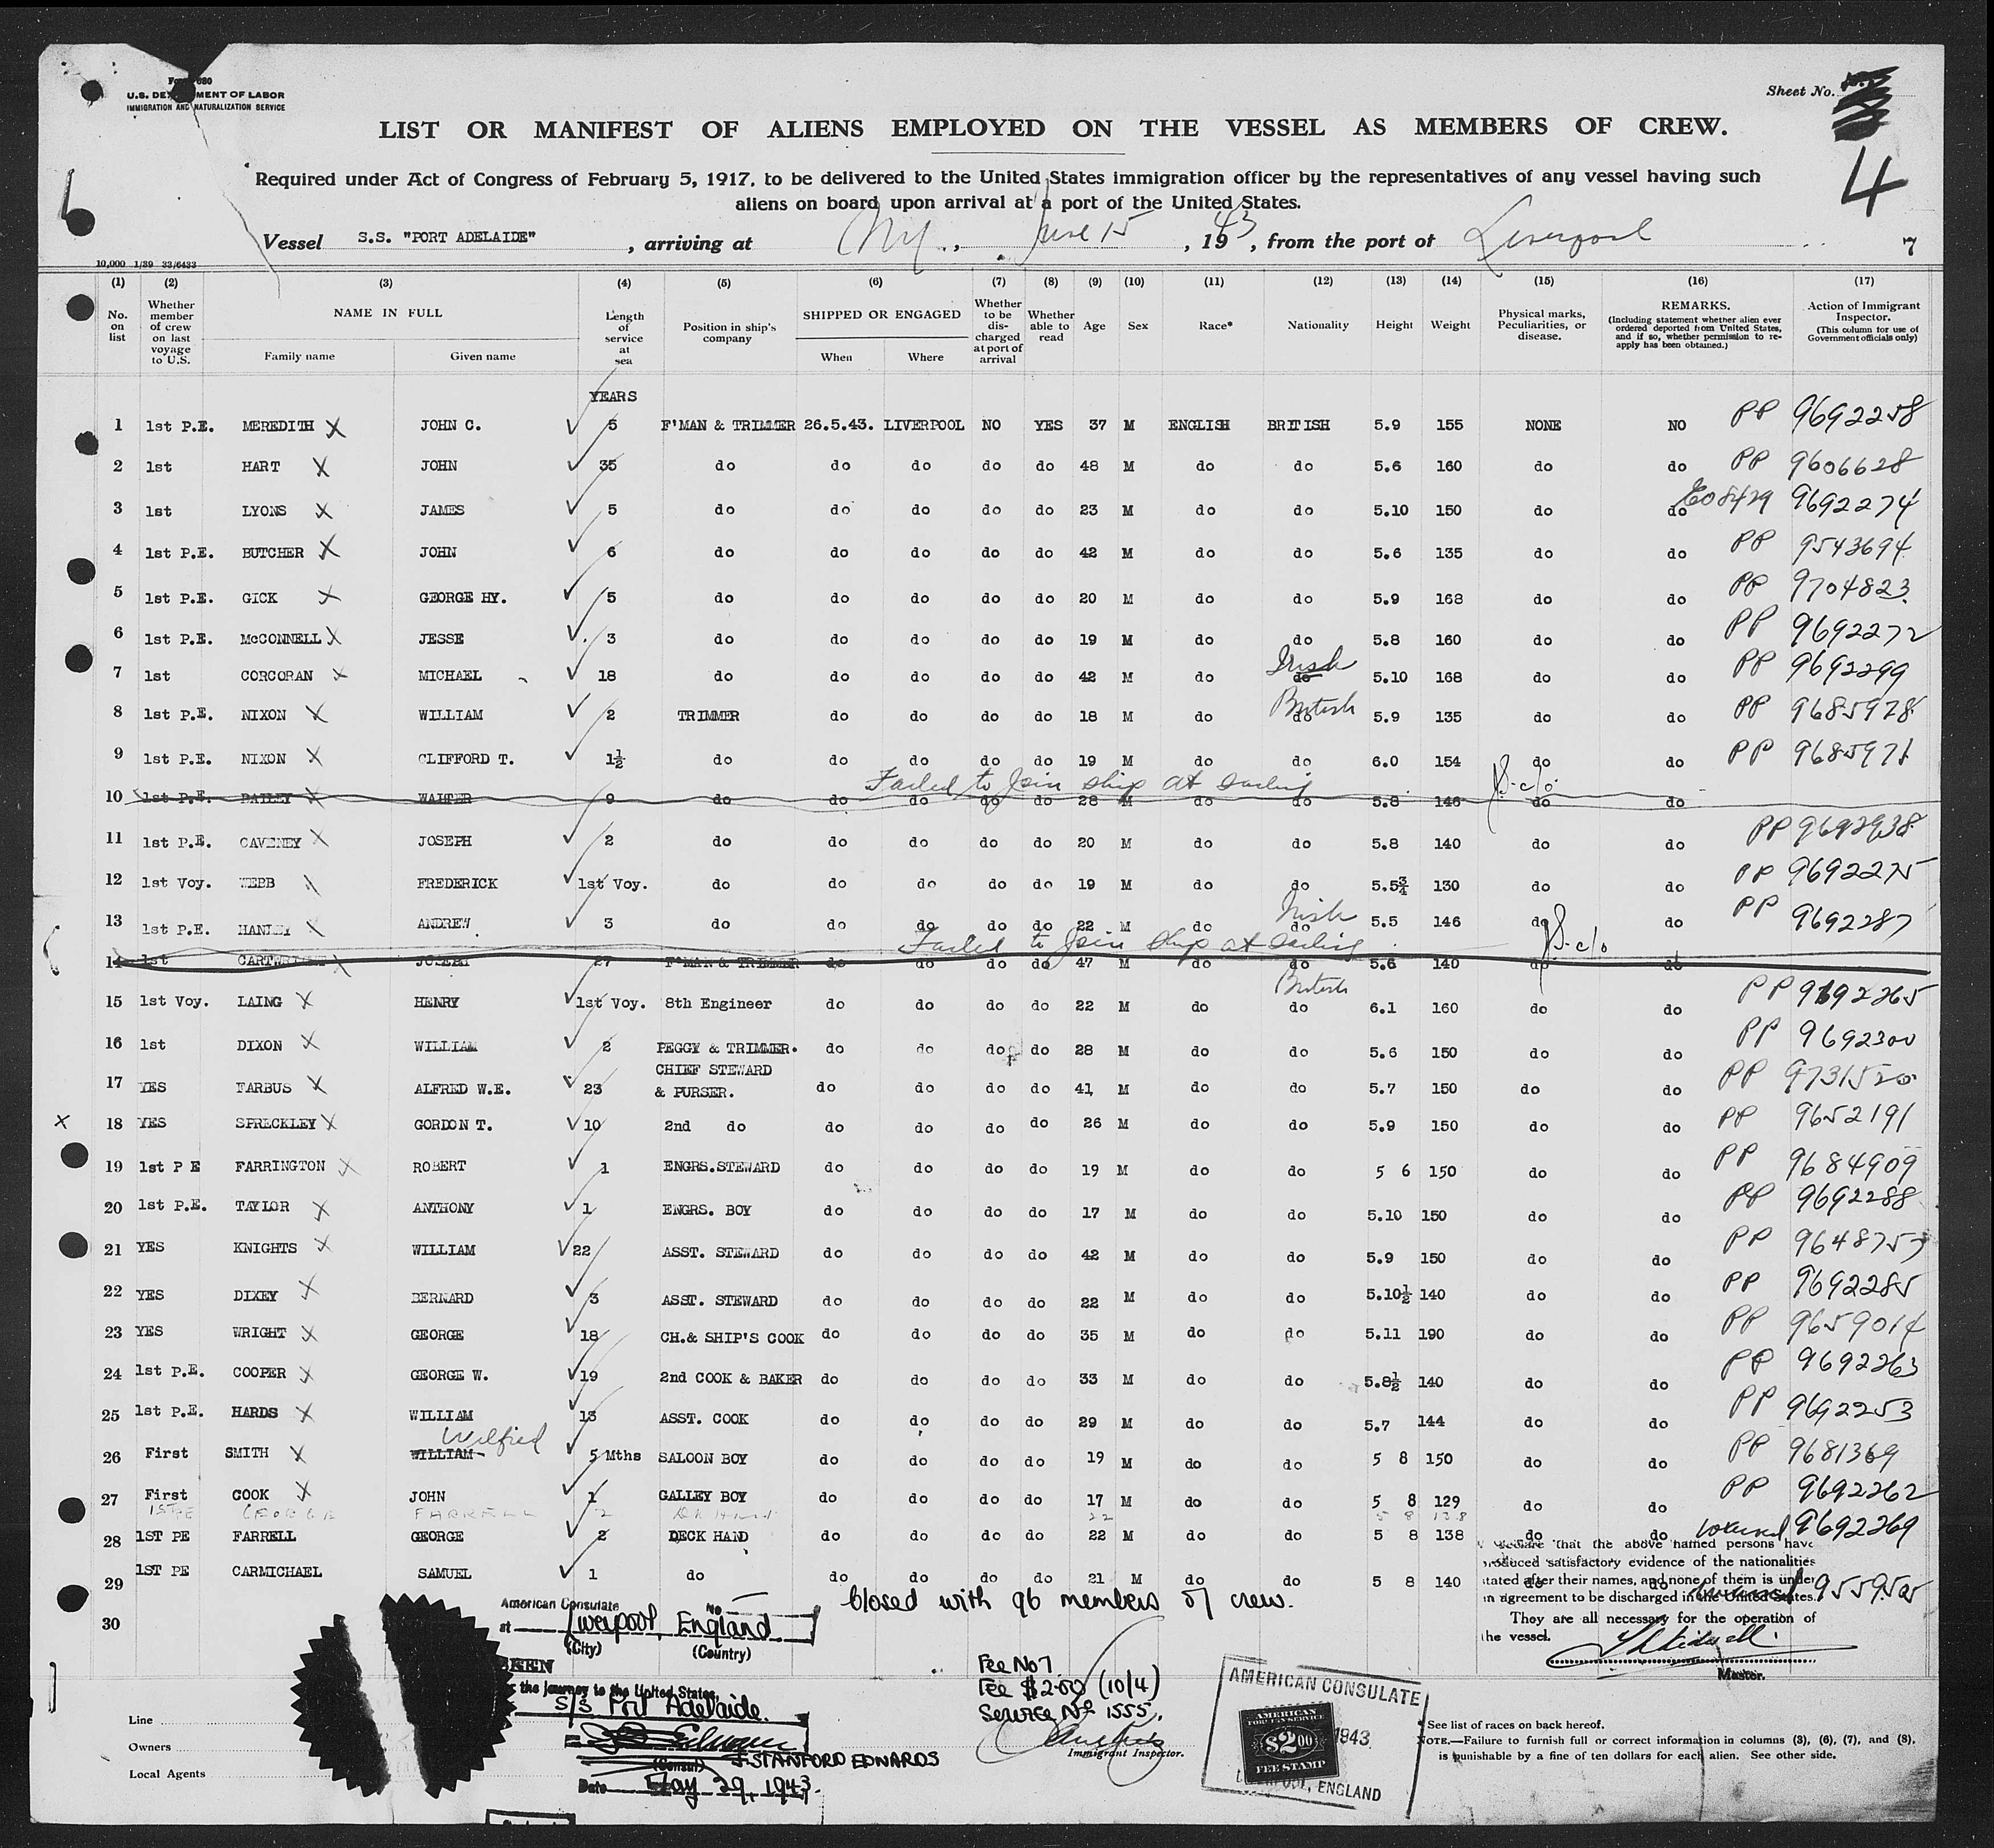 U.S. DEPARTMENT OF LABOR
IMMIGRATION AND NATURALIZATION SERVICE
Sheet No.
4
LIST OR MANIFEST OF ALIENS EMPLOYED ON THE VESSEL AS MEMBERS OF CREW.
Required under Act of Congress of February 5, 1917, to be delivered to the United States immigration officer by the representatives of any vessel having such
aliens on board upon arrival at a port of the United States.
Vessel S.S. "PORT ADELAIDE", arriving at NY, June 15, 1943, from the port of Liverpool
7
10,000 1/39 33/6433
(1) (2) (3) (4) (5) (6) (7) (8) (9) (10) (11) (12) (13) (14) (15) (16) (17)
No. on list
Whether member of crew on last voyage to U.S.
NAME IN FULL
Family name
Given name
Length of service at sea
Position in ship's company
SHIPPED OR ENGAGED
When
Where
Whether to be discharged at port of arrival
Whether able to read
Age
Sex
Race*
Nationality
Height
Weight
Physical marks, Peculiarities, or disease.
REMARKS.
(Including statement whether alien ever ordered deported from United States, and if so, whether permission to re-apply has been obtained.)
Action of Immigrant Inspector.
(This column for use of Government officials only)
YEARS
1 1st P.E. MEREDITH X JOHN C. 5 F'MAN & TRIMMER 26.5.43. LIVERPOOL NO YES 37 M ENGLISH BRITISH 5.9 155 NONE NO PP 9692258
2 1st HART X JOHN 35 do do do do do 48 M do do 5.6 160 do do PP 9606628
3 1st LYONS X JAMES 5 do do do do do 23 M do do 5.10 150 do do 9692274
4 1st P.E. BUTCHER X JOHN 6 do do do do do 42 M do do 5.6 135 do do PP 9543694
5 1st P.E. GICK X GEORGE HY. 5 do do do do do 20 M do do 5.9 168 do do PP 9704823
6 1st P.E. McCONNELL X JESSE 3 do do do do do 19 M do do 5.8 160 do do PP 9692272
7 1st CORCORAN X MICHAEL 18 do do do do do 42 M do do Irish 5.10 168 do do PP 9692299
8 1st P.E. NIXON X WILLIAM 2 TRIMMER do do do do 18 M do do British 5.9 135 do do PP 9685978
9 1st P.E. NIXON X CLIFFORD T. 1½ do do do do do 19 M do do 6.0 154 do do PP 9685971
Failed to Join ship at sailing
10 1st P.E. BAILEY X WALTER 9 do do do do do 28 M do do 5.8 146 do do
11 1st P.E. CAVENEY X JOSEPH 2 do do do do do 20 M do do 5.8 140 do do PP 9692938
12 1st Voy. WEBB X FREDERICK 1st Voy. do do do do do 19 M do do 5.5¾ 130 do do PP 9692275
13 1st P.E. HANLEY X ANDREW 3 do do do do do 22 M do do Irish 5.5 146 do do PP 9692287
Failed to Join ship at sailing
14 1st CARTWRIGHT X JOSEPH 27 F'MAN & TRIMMER do do do do 47 M do do 5.6 140 do do
15 1st Voy. LAING X HENRY 1st Voy. 8th Engineer do do do do 22 M do do British 6.1 160 do do PP 9692265
16 1st DIXON X WILLIAM 2 PEGGY & TRIMMER. do do do do 28 M do do 5.6 150 do do PP 9692300
17 YES FARBUS X ALFRED W.E. 23 CHIEF STEWARD & PURSER. do do do do 41 M do do 5.7 150 do do PP 9731520
X 18 YES SPRECKLEY X GORDON T. 10 2nd do do do do do 26 M do do 5.9 150 do do PP 9652191
19 1st P E FARRINGTON X ROBERT 1 ENGRS.STEWARD do do do do 19 M do do 5 6 150 do do PP 9684909
20 1st P.E. TAYLOR X ANTHONY 1 ENGRS. BOY do do do do 17 M do do 5.10 150 do do PP 9692288
21 YES KNIGHTS X WILLIAM 22 ASST. STEWARD do do do do 42 M do do 5.9 150 do do PP 9648757
22 YES DIXEY X BERNARD 3 ASST. STEWARD do do do do 22 M do do 5.10½ 140 do do PP 9692285
23 YES WRIGHT X GEORGE 18 CH.& SHIP'S COOK do do do do 35 M do do 5.11 190 do do PP 9659014
24 1st P.E. COOPER X GEORGE W. 19 2nd COOK & BAKER do do do do 33 M do do 5.8½ 140 do do PP 9692263
25 1st P.E. HARDS X WILLIAM 13 ASST. COOK do do do do 29 M do do 5.7 144 do do PP 9692253
26 First SMITH X WILLIAM Wilfred 5 Mths SALOON BOY do do do do 19 M do do 5 8 150 do do PP 9681369
27 First COOK X JOHN 1 GALLEY BOY do do do do 17 M do do 5 8 129 do do PP 9692262
28 1ST PE FARRELL GEORGE 2 DECK HAND do do do do 22 M do do 5 8 138 do do 9692269
29 1ST PE CARMICHAEL SAMUEL 1 do do do do do 21 M do do 5 8 140 do do
30
Closed with 96 members of crew.
declare that the above named persons have
produced satisfactory evidence of the nationalities
stated after their names, and none of them is under
an agreement to be discharged in the United States.
They are all necessary for the operation of
the vessel.
Master.
American Consulate
at Liverpool, England
(City) (Country)
SEEN
the journey to the United States,
S/S Port Adelaide.
(Consul) J. STANFORD EDWARDS
Date May 29, 1943.
Fee No 7
Fee $2.00 (10/4)
Service No 1555.
Immigrant Inspector.
AMERICAN CONSULATE
1943
AMERICAN FOREIGN SERVICE
$2.00
FEE STAMP
LIVERPOOL, ENGLAND
Line
Owners
Local Agents
* See list of races on back hereof.
NOTE.—Failure to furnish full or correct information in columns (3), (6), (7), and (8),
is punishable by a fine of ten dollars for each alien. See other side.